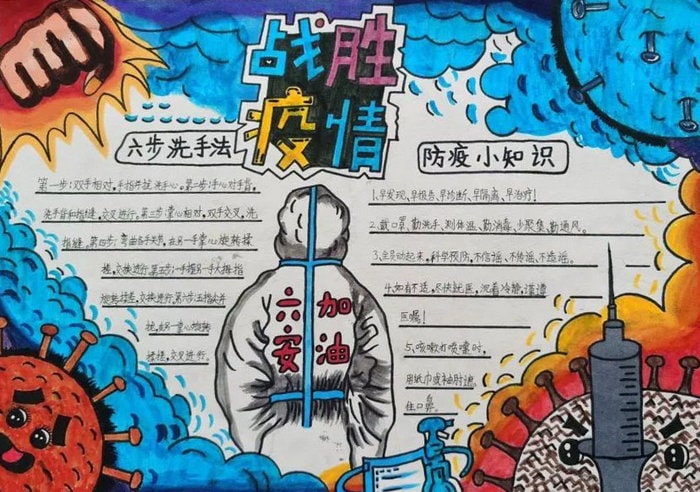 战胜
疫情
六步洗手法
第一步:双手相对,手指并拢,洗手心。第二步:手心对手背,
洗手背和指缝,交叉进行。第三步:掌心相对,双手交叉,洗
指缝。第四步:弯曲各手关节,在另一手掌心旋转揉
搓,交换进行。第五步:一手握另一手大拇指
旋转揉搓,交换进行。第六步:五指尖并
拢,在另一掌心旋转
揉搓,交叉进行。
六安
加油
防疫小知识
1、早发现、早报告、早诊断、早隔离、早治疗!
2、戴口罩、勤洗手、测体温、勤消毒、少聚集、勤通风。
3、全员动起来,科学预防,不信谣、不传谣、不造谣。
4、如有不适,尽快就医,沉着冷静,谨遵
医嘱!
5、咳嗽打喷嚏时,
用纸巾或袖肘遮
住口鼻。